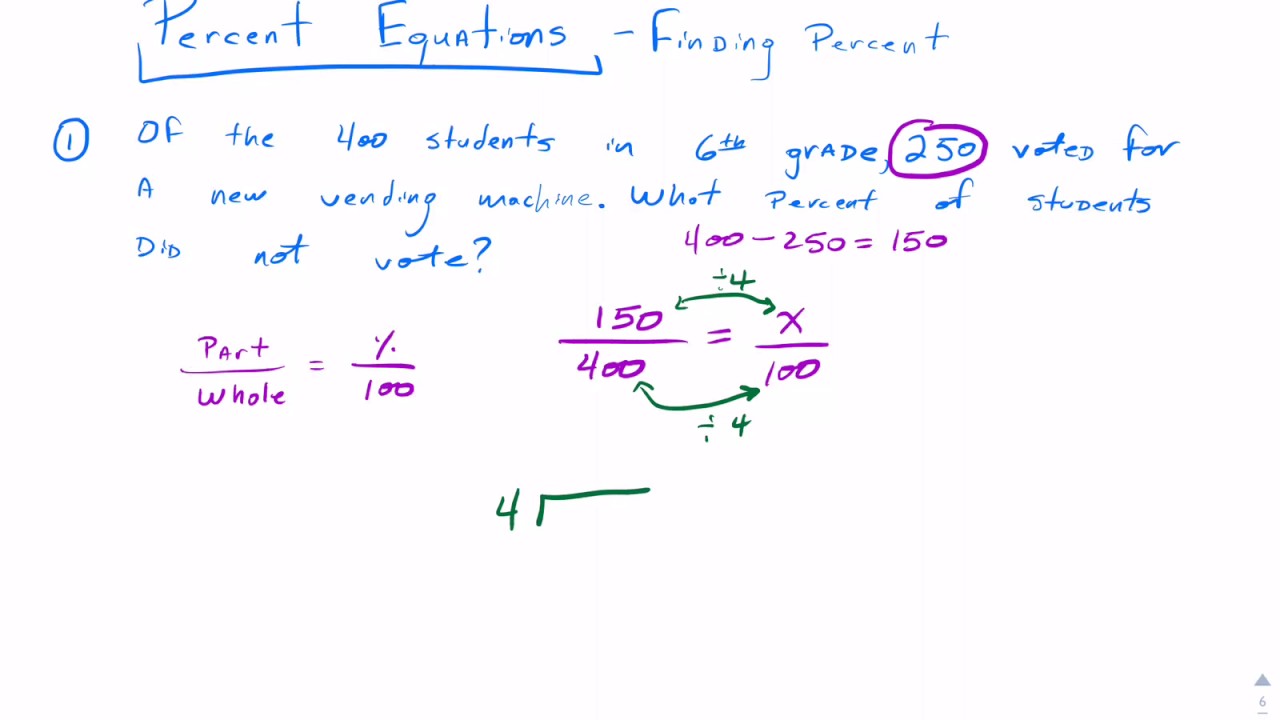 Percent Equations - Finding Percent
① Of the 400 students in 6th grade, 250 voted for
A new vending machine. What Percent of students
Did not vote?
400 - 250 = 150
÷4
Part/Whole = %/100
150/400 = x/100
÷ 4
4
6